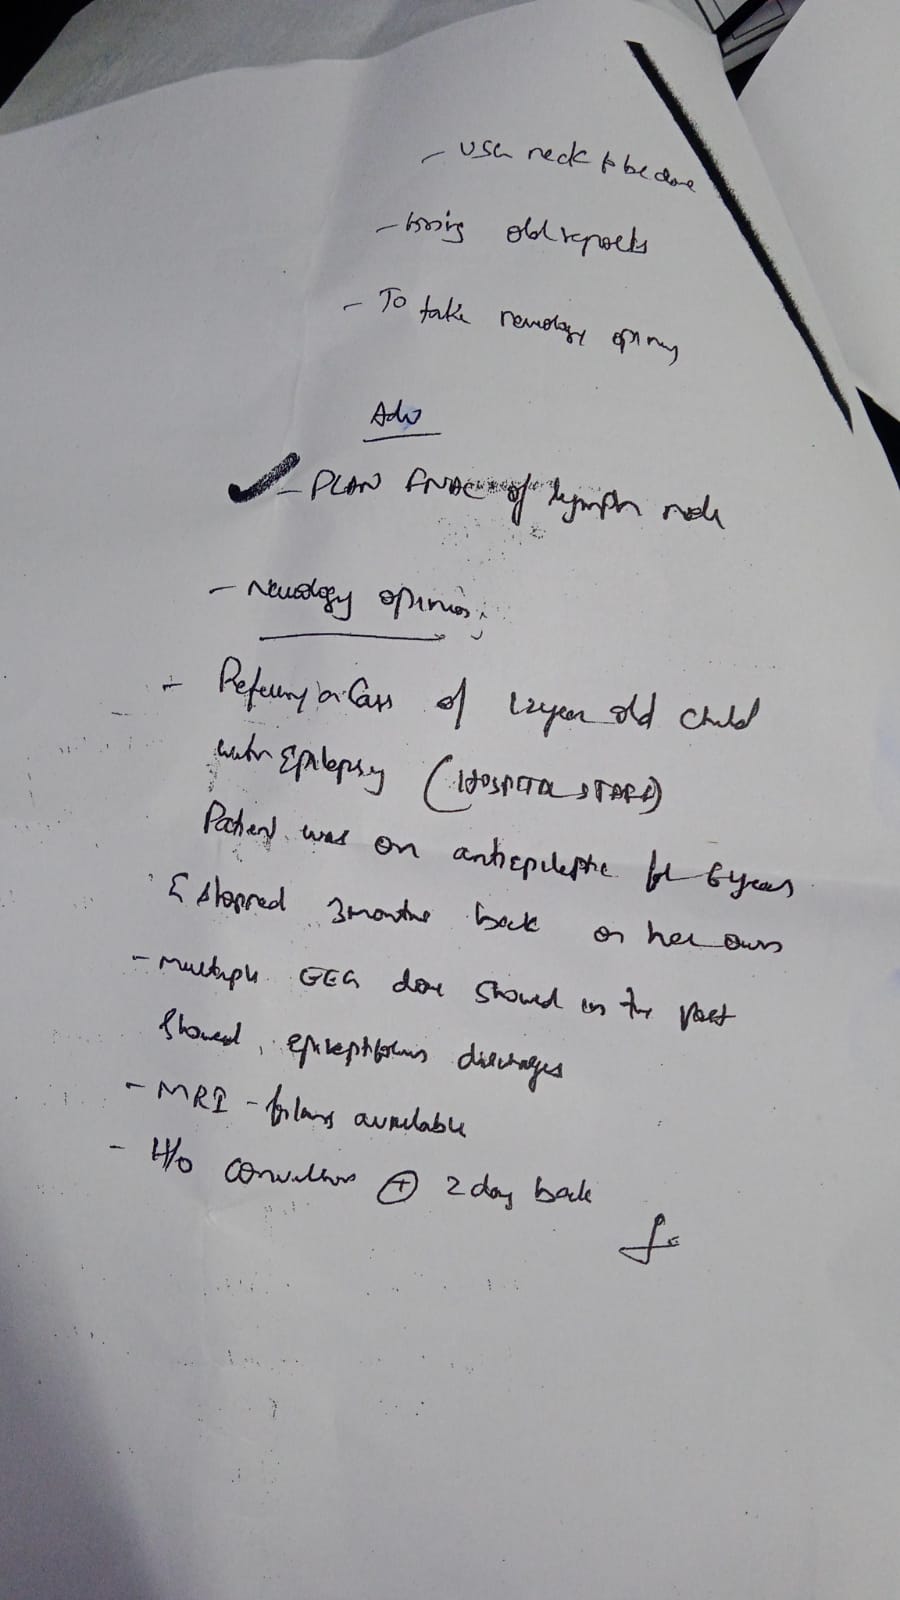 - USG neck to be done
- bring old reports
- To take neurology opinion
Adv
- PLAN FNAC of lymph node
- Neurology opinion;
- Referring a case of 12 year old child
with Epilepsy (HOSPITAL STAFF)
Patient was on antiepileptic for 6 years
& stopped 3 months back on her own
- Multiple EEG done showed in the past
showed, epileptiform discharges
- MRI - films available
- H/o convulsions (+) 2 day back